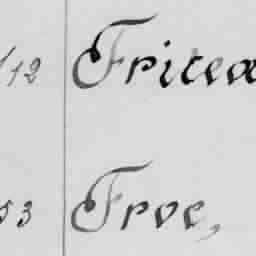 /12 Fricea
53 Froe,